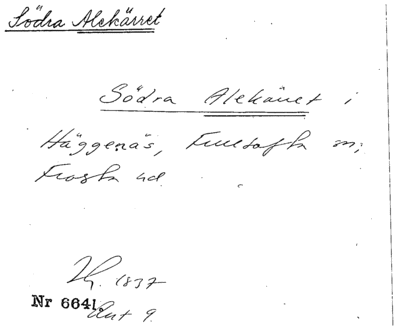 Södra Alekärret
Södra Alekärret i
Häggenäs, Fulltofta sn;
Frosta hd.
1837
Nr 6641.
Akt 9.